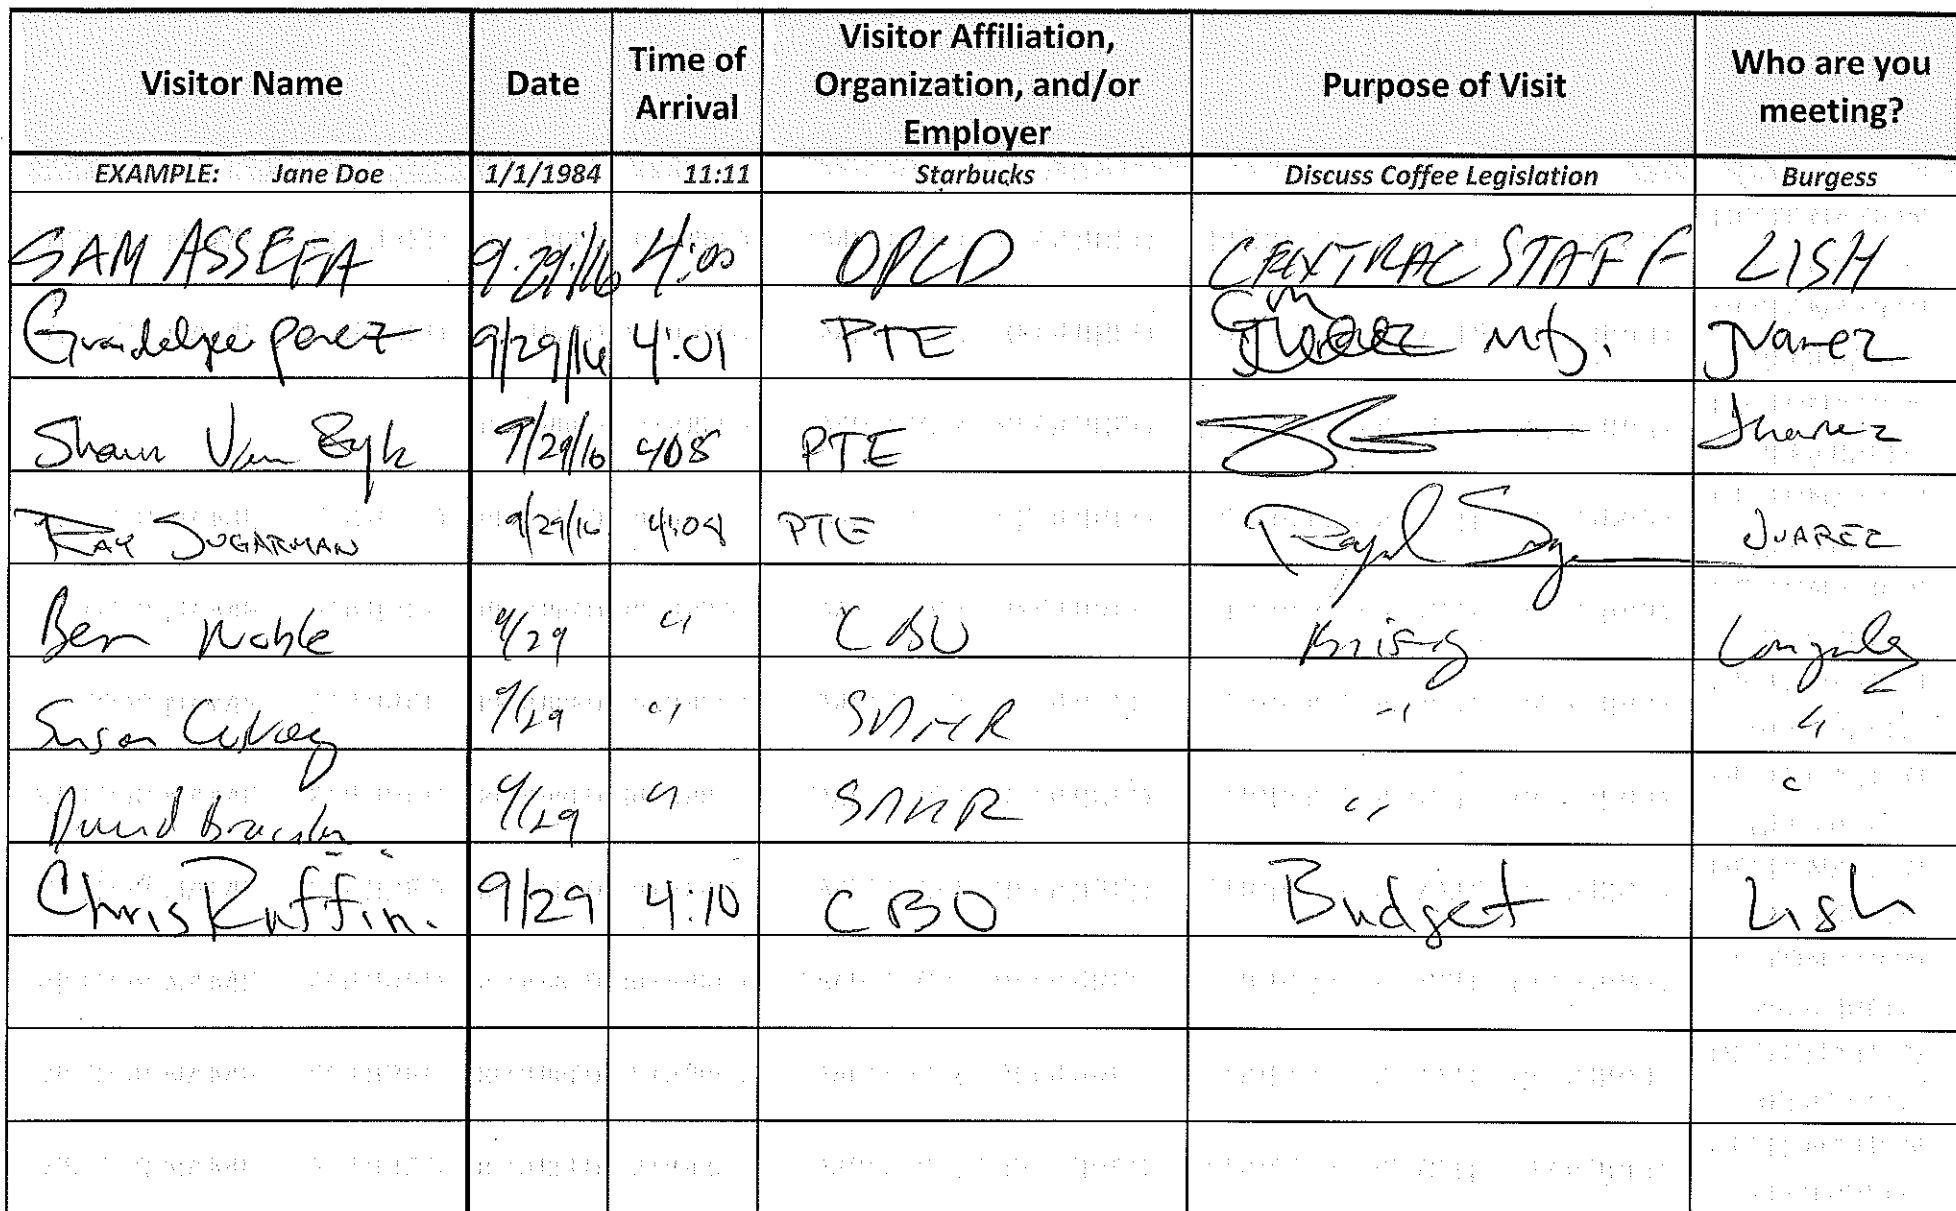 Visitor Name Date Time of Arrival Visitor Affiliation, Organization, and/or Employer Purpose of Visit Who are you meeting?
EXAMPLE: Jane Doe 1/1/1984 11:11 Starbucks Discuss Coffee Legislation Burgess
SAM ASSEFA 9.29.16 4:00 OPCD CENTRAL STAFF LISH
Guadalupe Perez 9/29/16 4:01 PTE Cm Mtg. Juarez
Shaun Van Eyk 9/29/16 408 PTE Juarez
RAY SUGARMAN 9/29/16 4:08 PTE JUAREZ
Ben Noble 9/29 " CBO Gonzalez
Susan 9/29 " SDHR " "
David 9/29 " SDHR " "
Chris Ruffin. 9/29 4:10 CBO Budget Lish